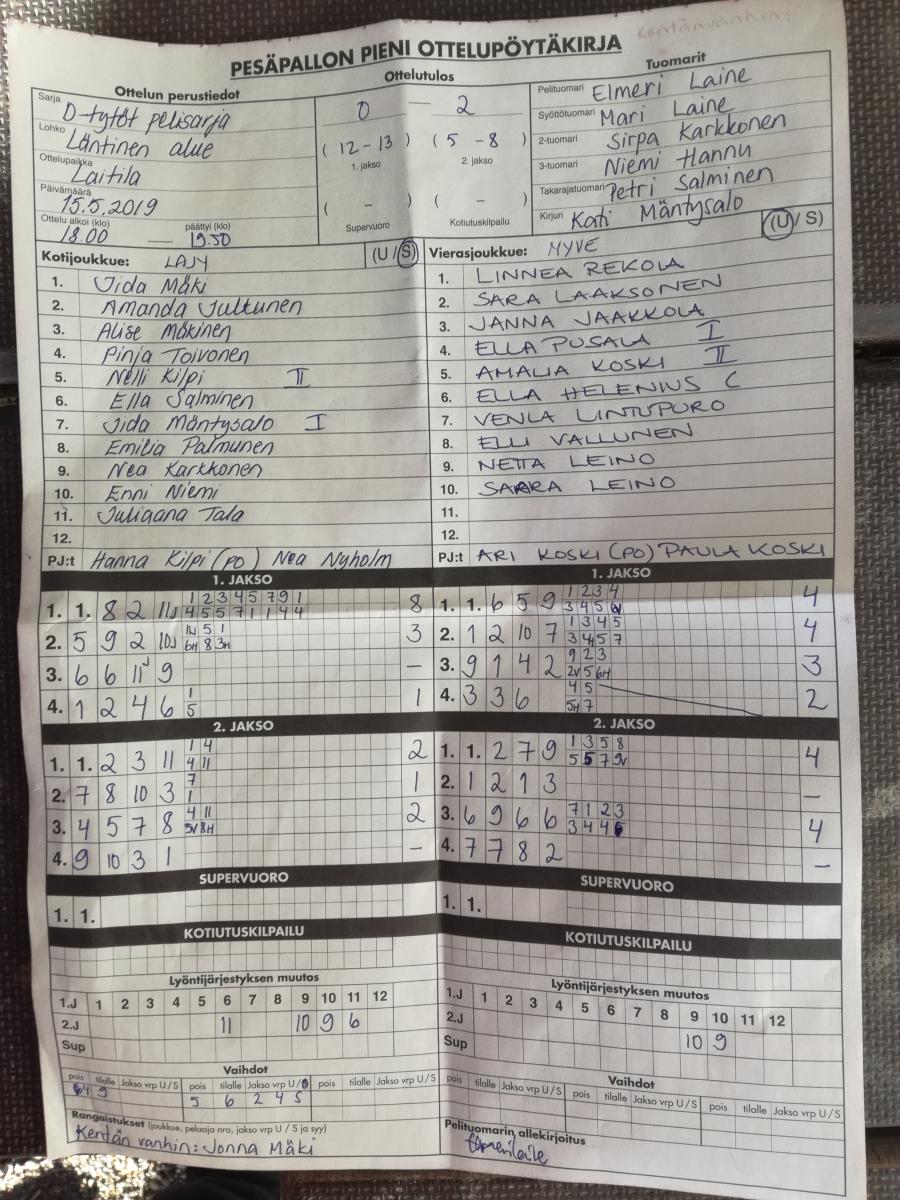 Kentänvanhin:
PESÄPALLON PIENI OTTELUPÖYTÄKIRJA
Ottelun perustiedot
Sarja D-tytöt pelisarja
Lohko Läntinen alue
Ottelupaikka Laitila
Päivämäärä 15.5.2019
Ottelu alkoi (klo) päättyi (klo)
18.00 — 19.50
Ottelutulos
0 — 2
( 12 - 13 ) ( 5 - 8 )
1. jakso 2. jakso
( - ) ( - )
Supervuoro Kotiutuskilpailu
Tuomarit
Pelituomari Elmeri Laine
Syöttötuomari Mari Laine
2-tuomari Sirpa Karkkonen
3-tuomari Niemi Hannu
Takarajatuomari Petri Salminen
Kirjuri Kati Mäntysalo
Kotijoukkue: LAJY (U / S)
1. Iida Mäki
2. Amanda Jultunen
3. Alise Mäkinen
4. Pinja Toivonen
5. Nelli Kilpi II
6. Ella Salminen
7. Iida Mäntysalo I
8. Emilia Palmunen
9. Nea Karkkonen
10. Enni Niemi
11. Juliaana Tala
12.
PJ:t Hanna Kilpi (PO) Nea Nyholm
Vierasjoukkue: MYVE (U / S)
1. LINNEA REKOLA
2. SARA LAAKSONEN
3. JANNA JAAKKOLA
4. ELLA PUSALA I
5. AMALIA KOSKI II
6. ELLA HELENIUS C
7. VENLA LINTUPURO
8. ELLI VALLUNEN
9. NETTA LEINO
10. SARRA LEINO
11.
12.
PJ:t ARI KOSKI (PO) PAULA KOSKI
1. JAKSO
1 2 3 4 5 7 9 1
1. 1. 8 2 11J 4 5 5 7 1 1 4 4 8
1N 5 1
2. 5 9 2 10J 6H 8 3H 3
3. 6 6 11N 9 —
1
4. 1 2 4 6 5 1
2. JAKSO
1 4
1. 1. 2 3 11 4 11 2
7
2. 7 8 10 3 1 1
4 11
3. 4 5 7 8 5V 8H 2
4. 9 10 3 1 —
SUPERVUORO
1. 1.
KOTIUTUSKILPAILU
1. JAKSO
1 2 3 4
1. 1. 6 5 9 3 4 5 4
1 3 4 5
2. 1 2 10 7 3 4 5 7 4
9 2 3
3. 9 1 4 2 2V 5 6H 3
4 5
4. 3 3 6 5H 7 2
2. JAKSO
1 3 5 8
1. 1. 2 7 9 5 5 7 9V 4
2. 1 2 1 3 —
7 1 2 3
3. 6 9 6 6 3 4 4 4
4. 7 7 8 2 —
SUPERVUORO
1. 1.
KOTIUTUSKILPAILU
Lyöntijärjestyksen muutos
1.J 1 2 3 4 5 6 7 8 9 10 11 12
2.J 11 10 9 6
Sup
Vaihdot
pois tilalle Jakso vrp U / S pois tilalle Jakso vrp U / S pois tilalle Jakso vrp U / S
9 5 6 2 4 S
Rangaistukset (joukkue, pelaaja nro, jakso vrp U / S ja syy)
Kentän vanhin: Jonna Mäki
Lyöntijärjestyksen muutos
1.J 1 2 3 4 5 6 7 8 9 10 11 12
2.J 10 9
Sup
Vaihdot
pois tilalle Jakso vrp U / S pois tilalle Jakso vrp U / S pois tilalle Jakso vrp U / S
Pelituomarin allekirjoitus